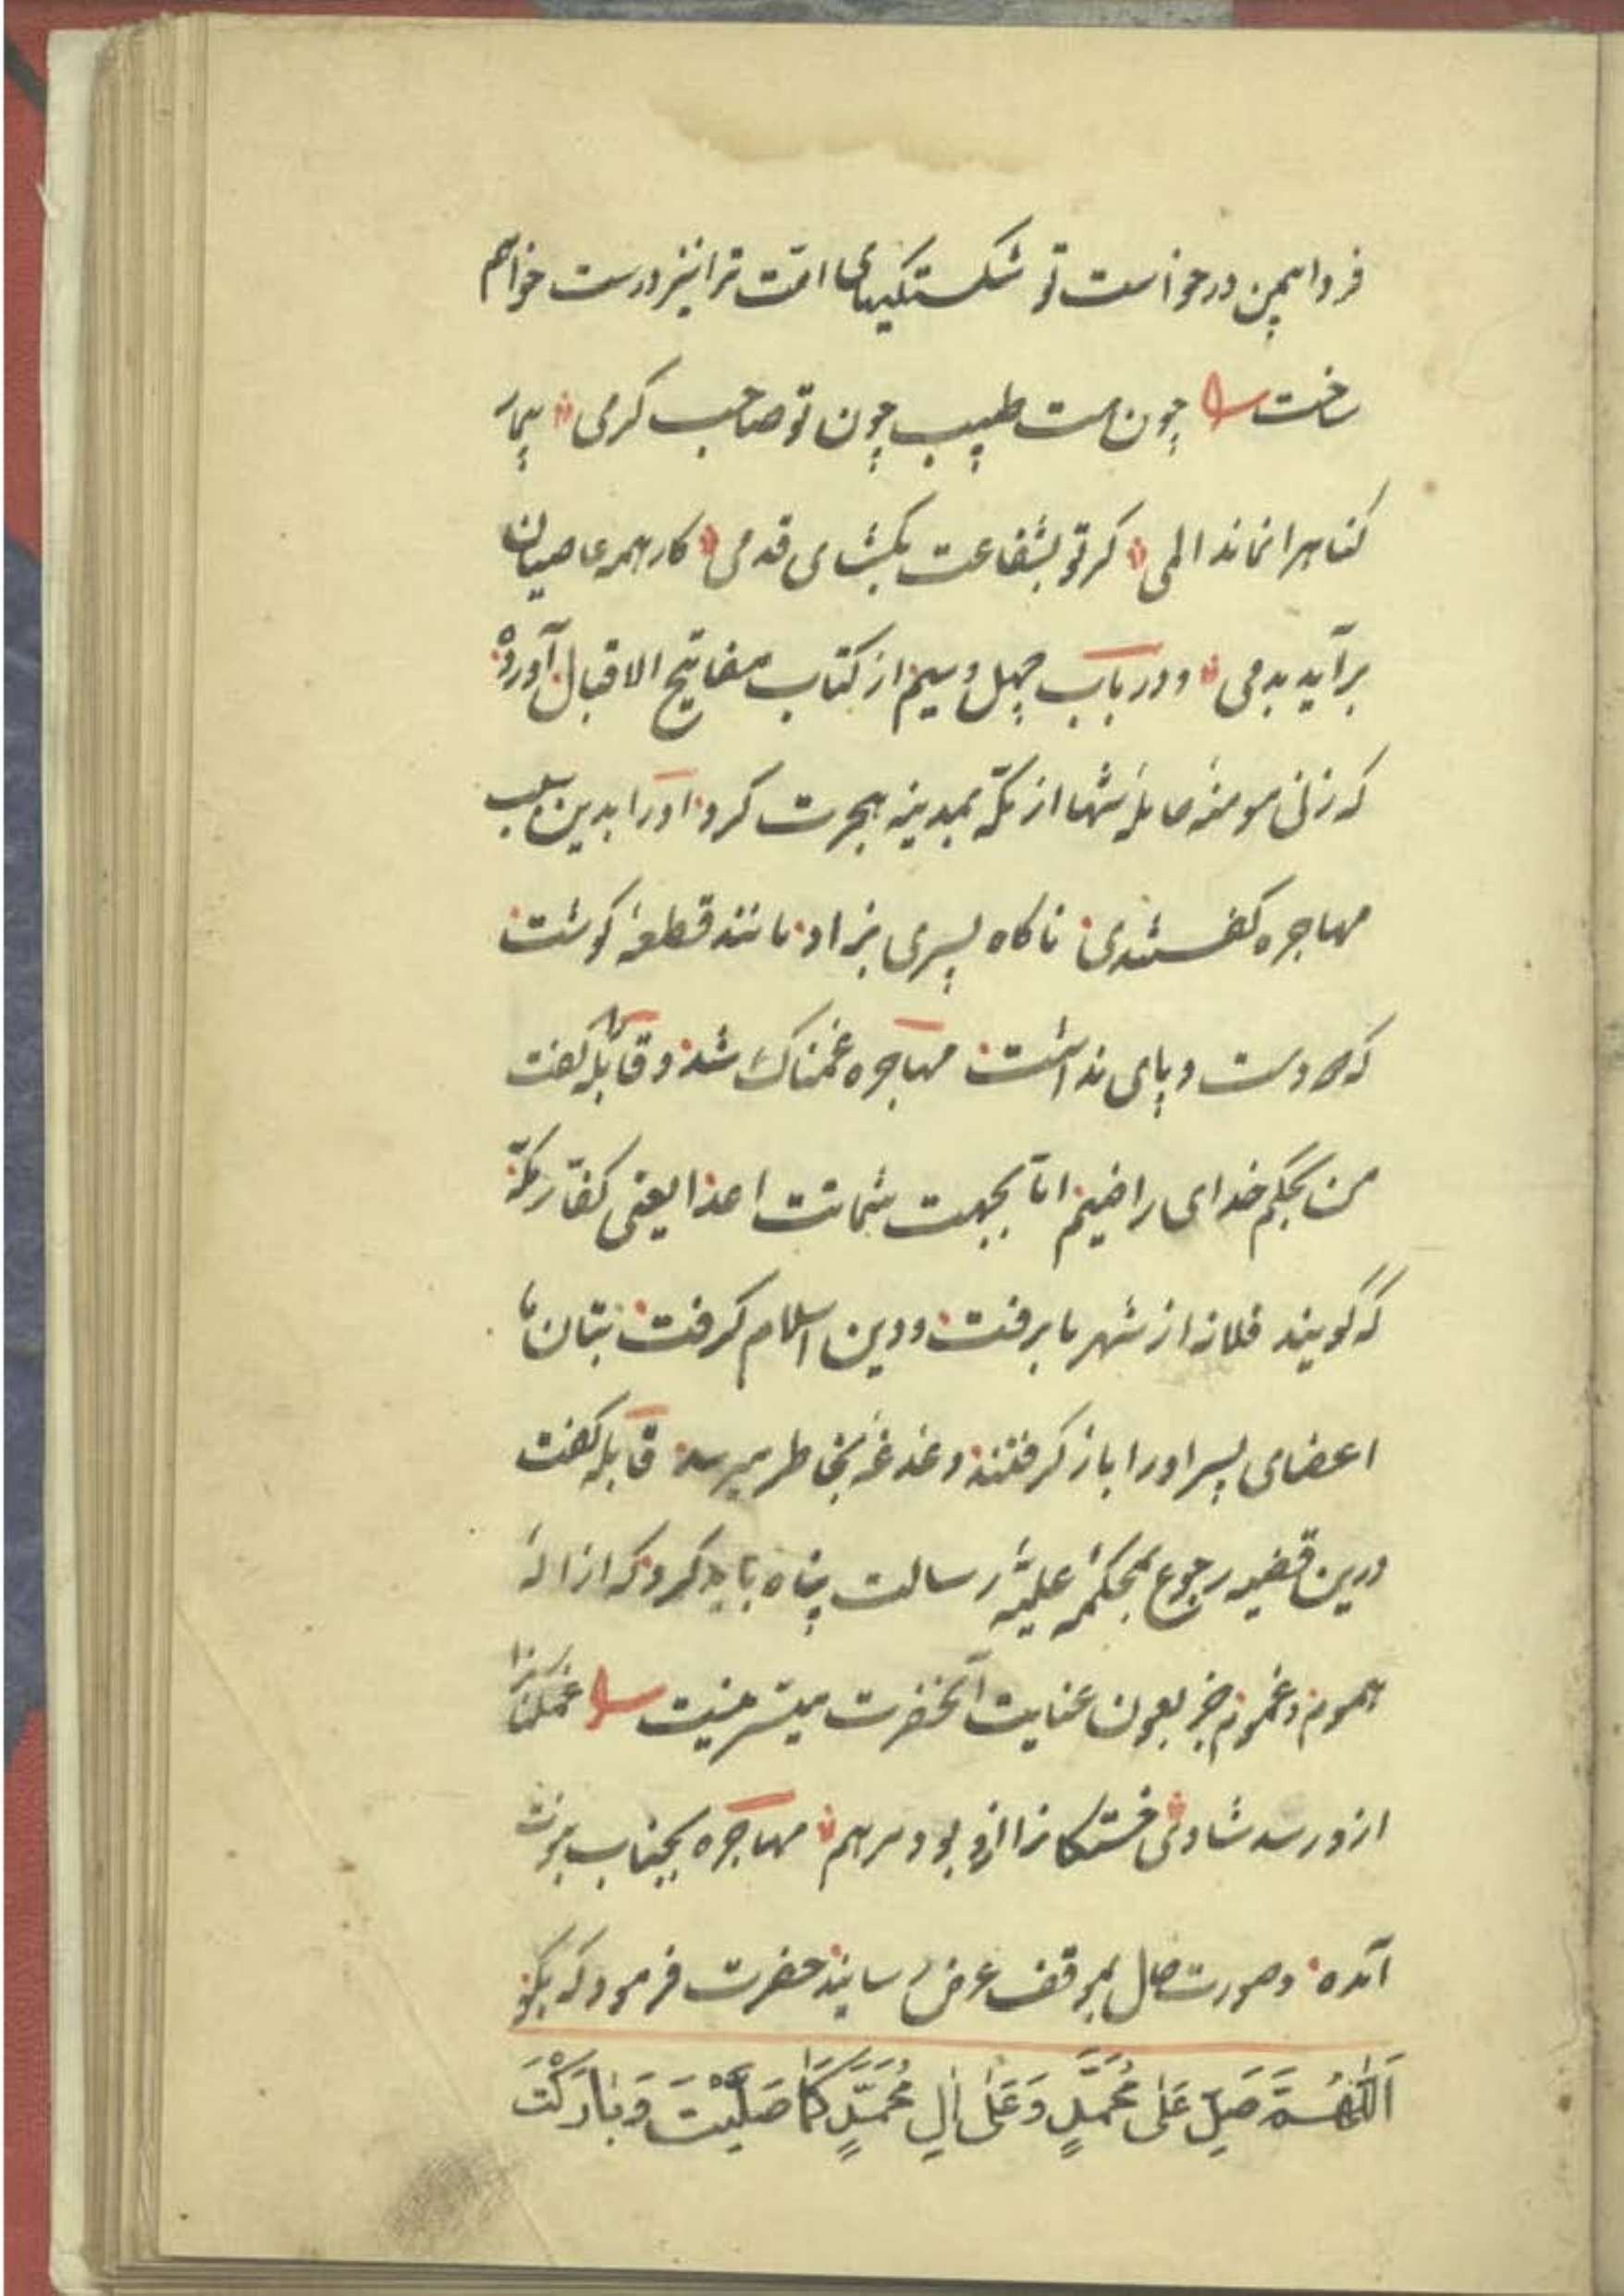 فردا بهمین درخواست تو شکستگیهای امت ترا نیز درست خواهم
ساخت چون هست طبیب چون تو صاحب کرمی بیمار
کناهرا نماند المی کر تو بشفاعت بکشای قدمی کار همه عاصیان
برآید بدمی و در باب چهل و سیم از کتاب مفاتیح الاقبال آورده
که زنی مومنهٔ حاملهٔ تنها از مکه بمدینه هجرت کرد او را بدین سبب
مهاجره کفتندی ناکاه پسری بزاد مانند قطعهٔ کوشت
که دست و پای نداشت مهاجره غمناک شد و قابله کفت
من بحکم خدای راضیم اما بجهت شماتت اعدا یعنی کفار مکه
که کویند فلانه از شهر ما برفت و دین اسلام کرفت بتان ما
اعضای پسر او را باز کرفتند دغدغه بخاطر میرسد قابله کفت
درین قضیه رجوع بمحکمهٔ علیهٔ رسالت پناه باید کرد که ازالهٔ
هموم و غموم جز بعون عنایت آنحضرت میسر نیست غمکنانرا
ازو رسد شادی خستکانرا ازو بود مرهم مهاجره بجناب نبوت
آمده و صورت حال بموقف عرض رسانید حضرت فرمود که بکو
اَللّٰهُمَّ صَلِّ عَلٰی مُحَمَّدٍ وَعَلٰی اٰلِ مُحَمَّدٍ کَمَا صَلَّیْتَ وَبَارَکْتَ